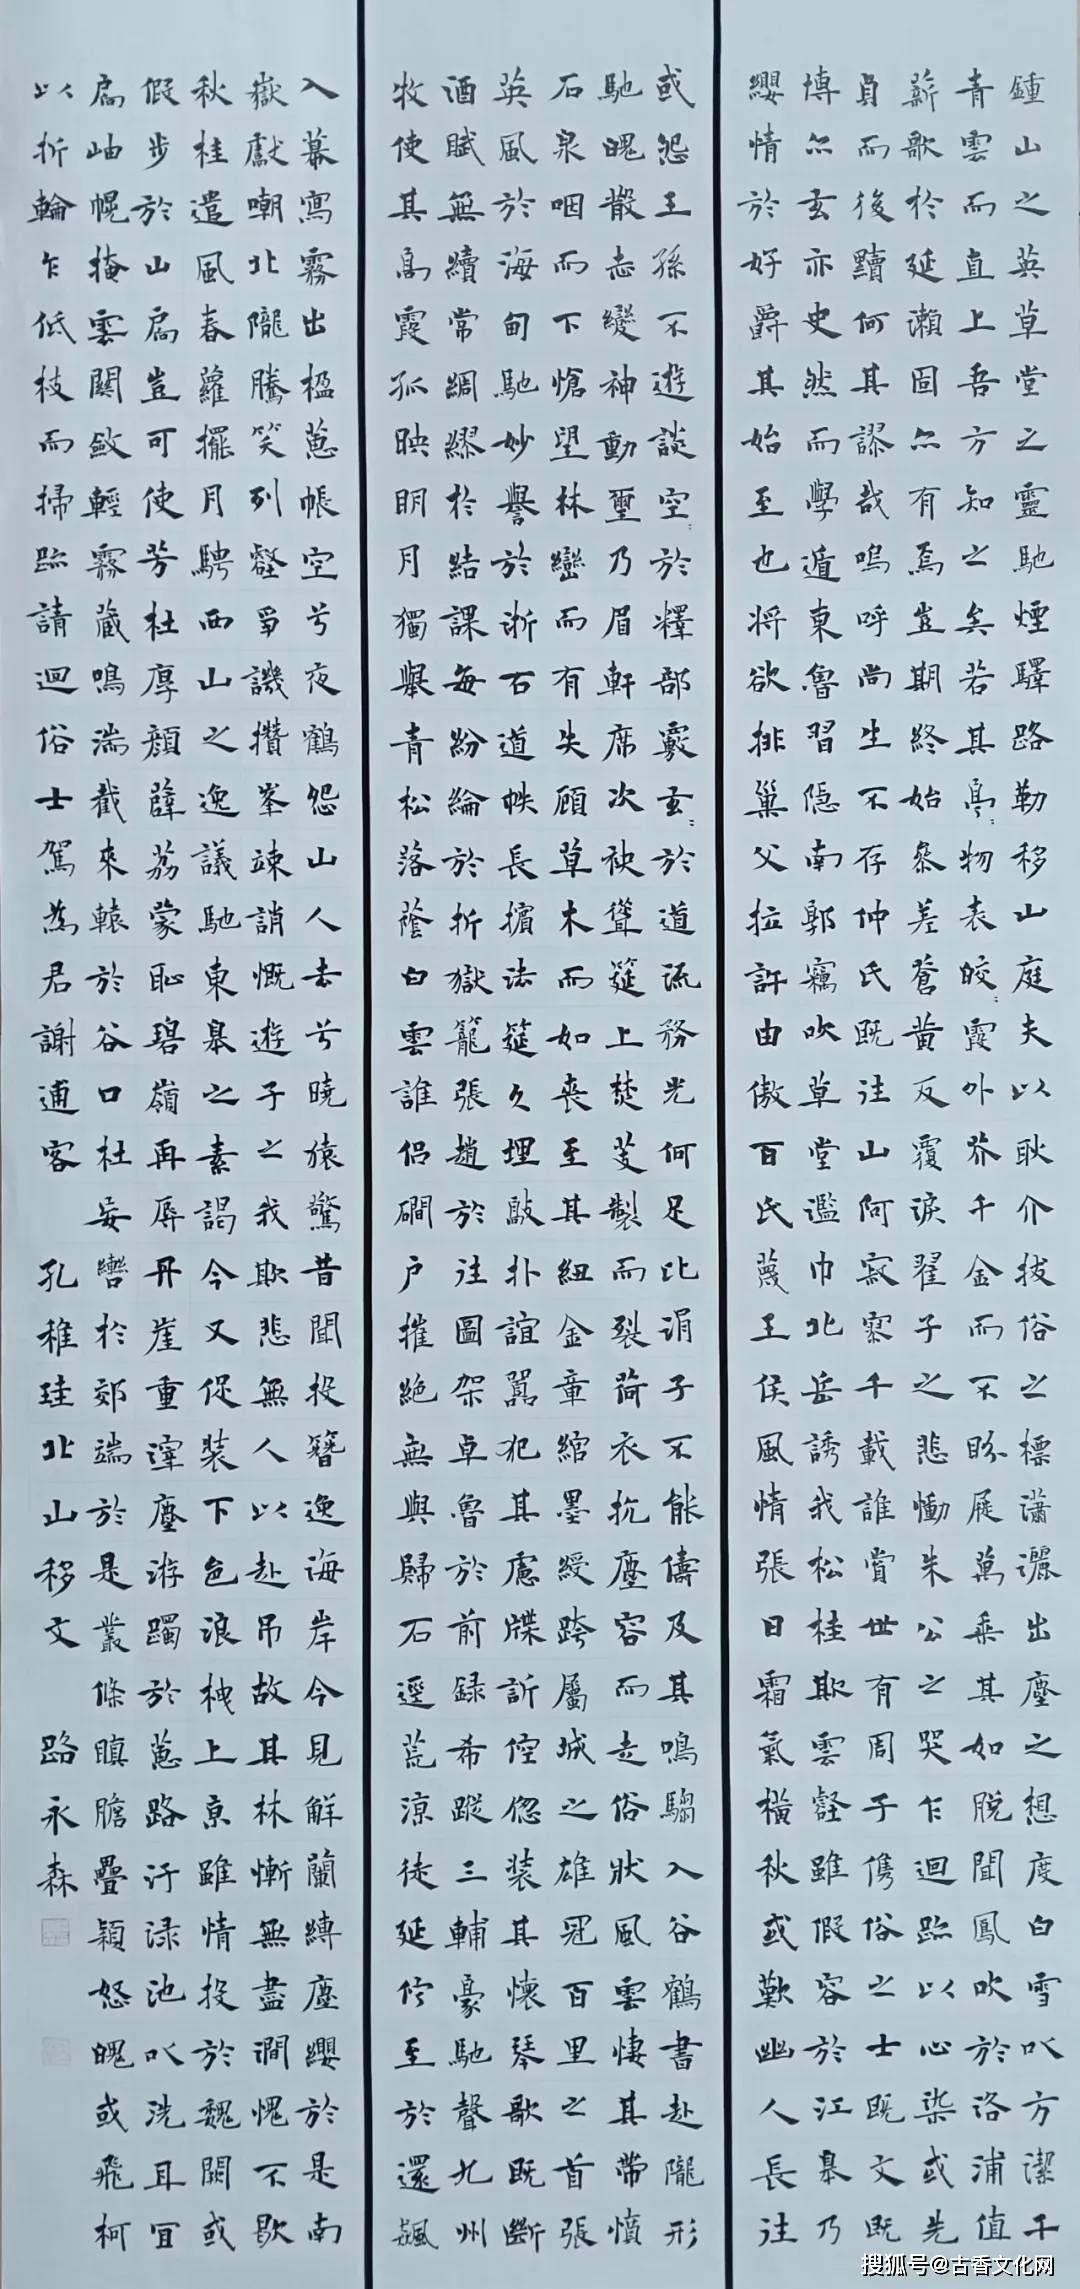 鍾山之英草堂之靈馳煙驛路勒移山庭夫以耿介拔俗之標瀟灑出塵之想度白雪以方潔干
青雲而直上吾方知之矣若其亭〻物表皎〻霞外芥千金而不眄屣萬乘其如脫聞鳳吹於洛浦值
薪歌於延瀨固亦有焉豈期終始參差蒼黃反覆淚翟子之悲慟朱公之哭乍迴跡以心染或先
貞而後黷何其謬哉嗚呼尚生不存仲氏既往山阿寂寥千載誰賞世有周子儁俗之士既文既
博亦玄亦史然而學遁東魯習隱南郭竊吹草堂濫巾北岳誘我松桂欺雲壑雖假容於江皋乃
纓情於好爵其始至也將欲排巢父拉許由傲百氏蔑王侯風情張日霜氣橫秋或歎幽人長往
或怨王孫不遊談空〻於釋部覈玄〻於道流務光何足比涓子不能儔及其鳴騶入谷鶴書赴隴形
馳魄散志變神動爾乃眉軒席次袂聳筵上焚芰製而裂荷衣抗塵容而走俗狀風雲悽其帶憤
石泉咽而下愴望林巒而有失顧草木而如喪至其紐金章綰墨綬跨屬城之雄冠百里之首張
英風於海甸馳妙譽於浙右道帙長擯法筵久埋敲扑諠囂犯其慮牒訴倥傯裝其懷琴歌既斷
酒賦無續常綢繆於結課每紛綸於折獄籠張趙於往圖架卓魯於前錄希蹤三輔豪馳聲九州
牧使其高霞孤映明月獨舉青松落蔭白雲誰侶磵戶摧絕無與歸石逕荒涼徒延佇至於還飆
入幕寫霧出楹蕙帳空兮夜鶴怨山人去兮曉猿驚昔聞投簪逸海岸今見解蘭縛塵纓於是南
嶽獻嘲北隴騰笑列壑爭譏攢峯竦誚慨遊子之我欺悲無人以赴吊故其林慚無盡澗愧不歇
秋桂遣風春蘿擺月騁西山之逸議馳東皋之素謁今又促裝下邑浪栧上京雖情投於魏闕或
假步於山扃豈可使芳杜厚顏薜荔蒙恥碧嶺再辱丹崖重滓塵游躅於蕙路汙淥池以洗耳宜
扃岫幌掩雲關斂輕霧藏鳴湍截來轅於谷口杜妄轡於郊端於是叢條瞋膽疊穎怒魄或飛柯
以折輪乍低枝而掃跡請迴俗士駕為君謝逋客 孔稚珪北山移文 路永森
搜狐号@古香文化网